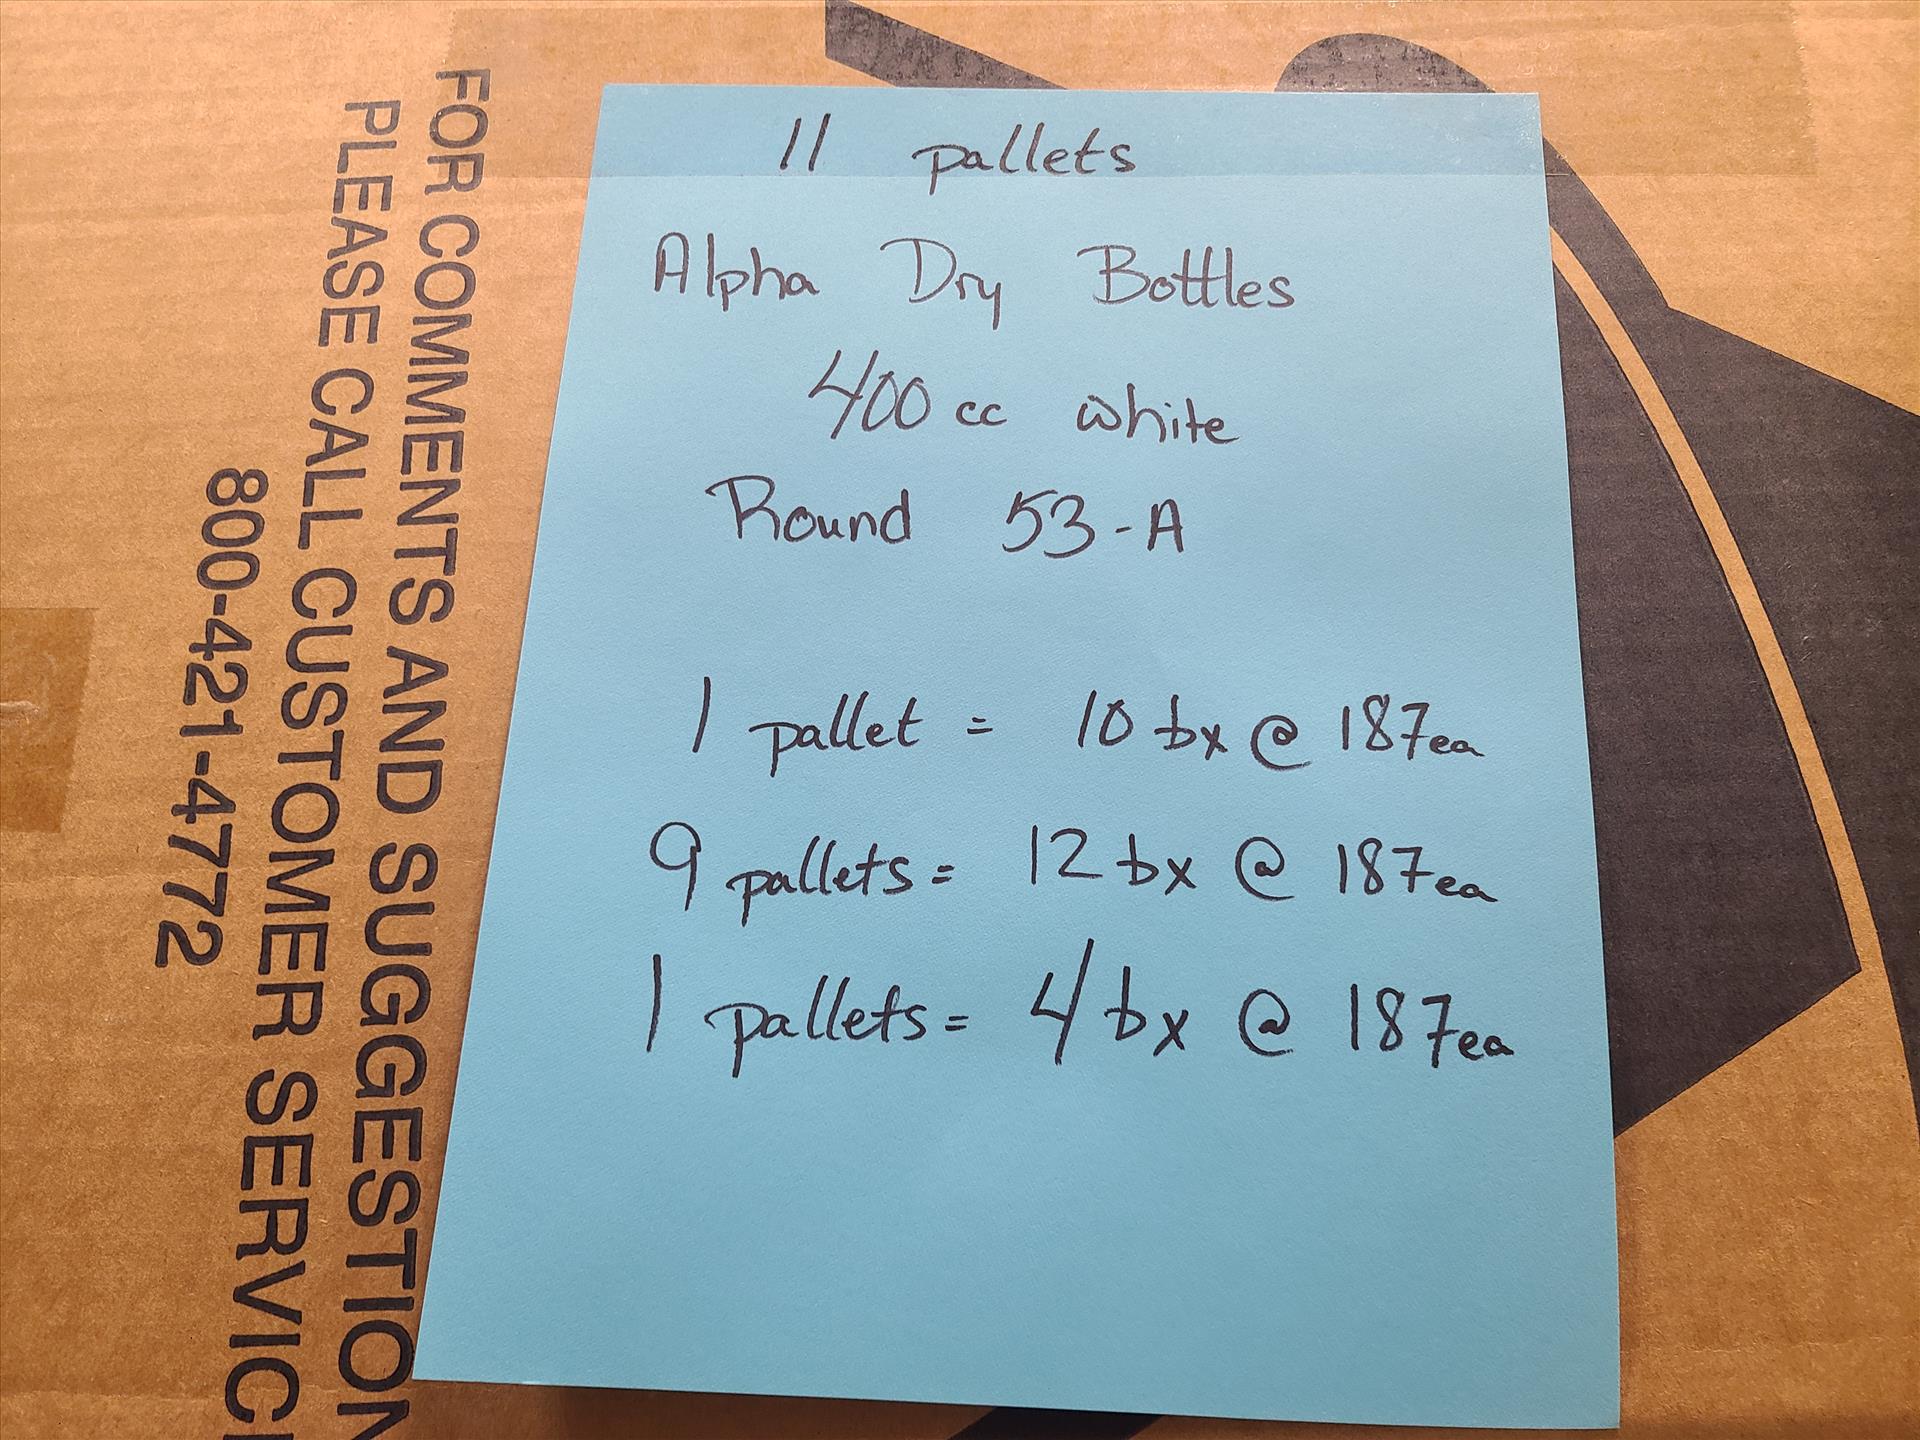 11 pallets
Alpha Dry Bottles
400 cc white
Round 53-A
1 pallet = 10 bx @ 187ea
9 pallets = 12 bx @ 187ea
1 pallets = 4 bx @ 187ea
FOR COMMENTS AND SUGGESTION
PLEASE CALL CUSTOMER SERVIC
800-421-4772